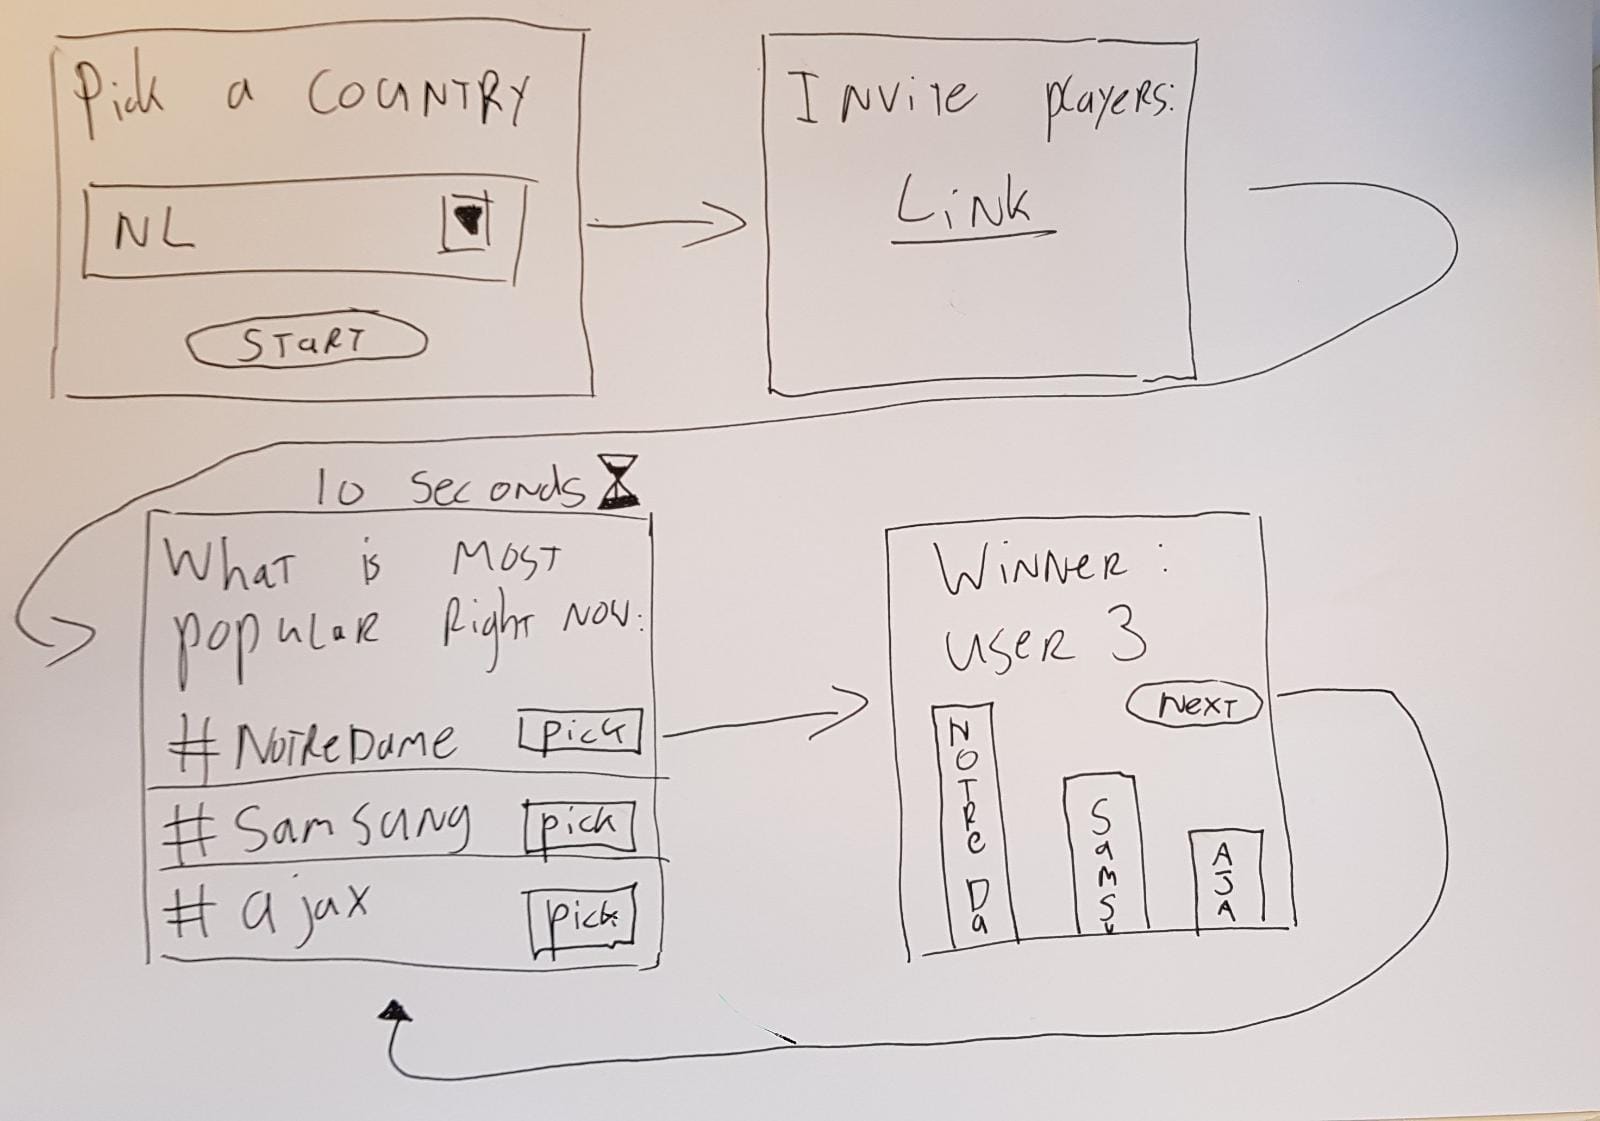 Pick a COUNTRY
NL
START
INVITE players:
LINK
10 seconds
What is MOST
popular Right NOW:
#NOTREDAME pick
#SAMSUNG pick
#ajax pick
WINNER:
USER 3
NEXT
NOTREDA
SAMSU
AJA